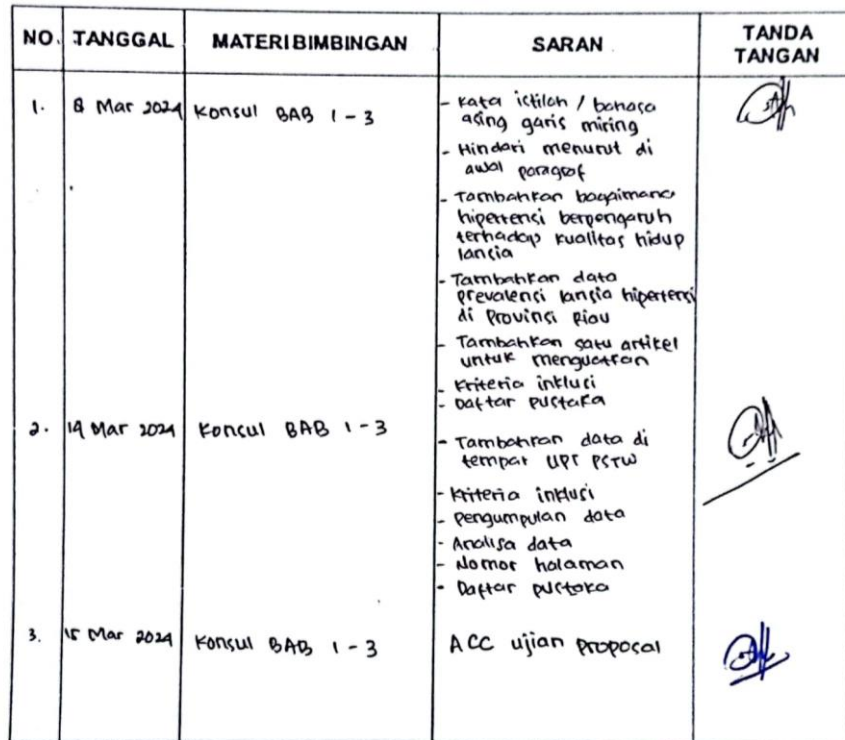 NO. TANGGAL MATERI BIMBINGAN SARAN TANDA TANGAN
1. 8 Mar 2024 Konsul BAB 1-3
- Kata istilah / bahasa
asing garis miring
- Hindari menurut di
awal paragraf
- Tambahkan bagaimana
hipertensi berpengaruh
terhadap kualitas hidup
lansia
- Tambahkan data
prevalensi lansia hipertensi
di Provinsi Riau
- Tambahkan satu artikel
untuk menguatkan
- Kriteria inklusi
- Daftar pustaka
2. 14 Mar 2024 Konsul BAB 1-3
- Tambahkan data di
tempat UPT PSTW
- Kriteria inklusi
- Pengumpulan data
- Analisa data
- Nomor halaman
- Daftar pustaka
3. 15 Mar 2024 Konsul BAB 1-3 ACC ujian proposal